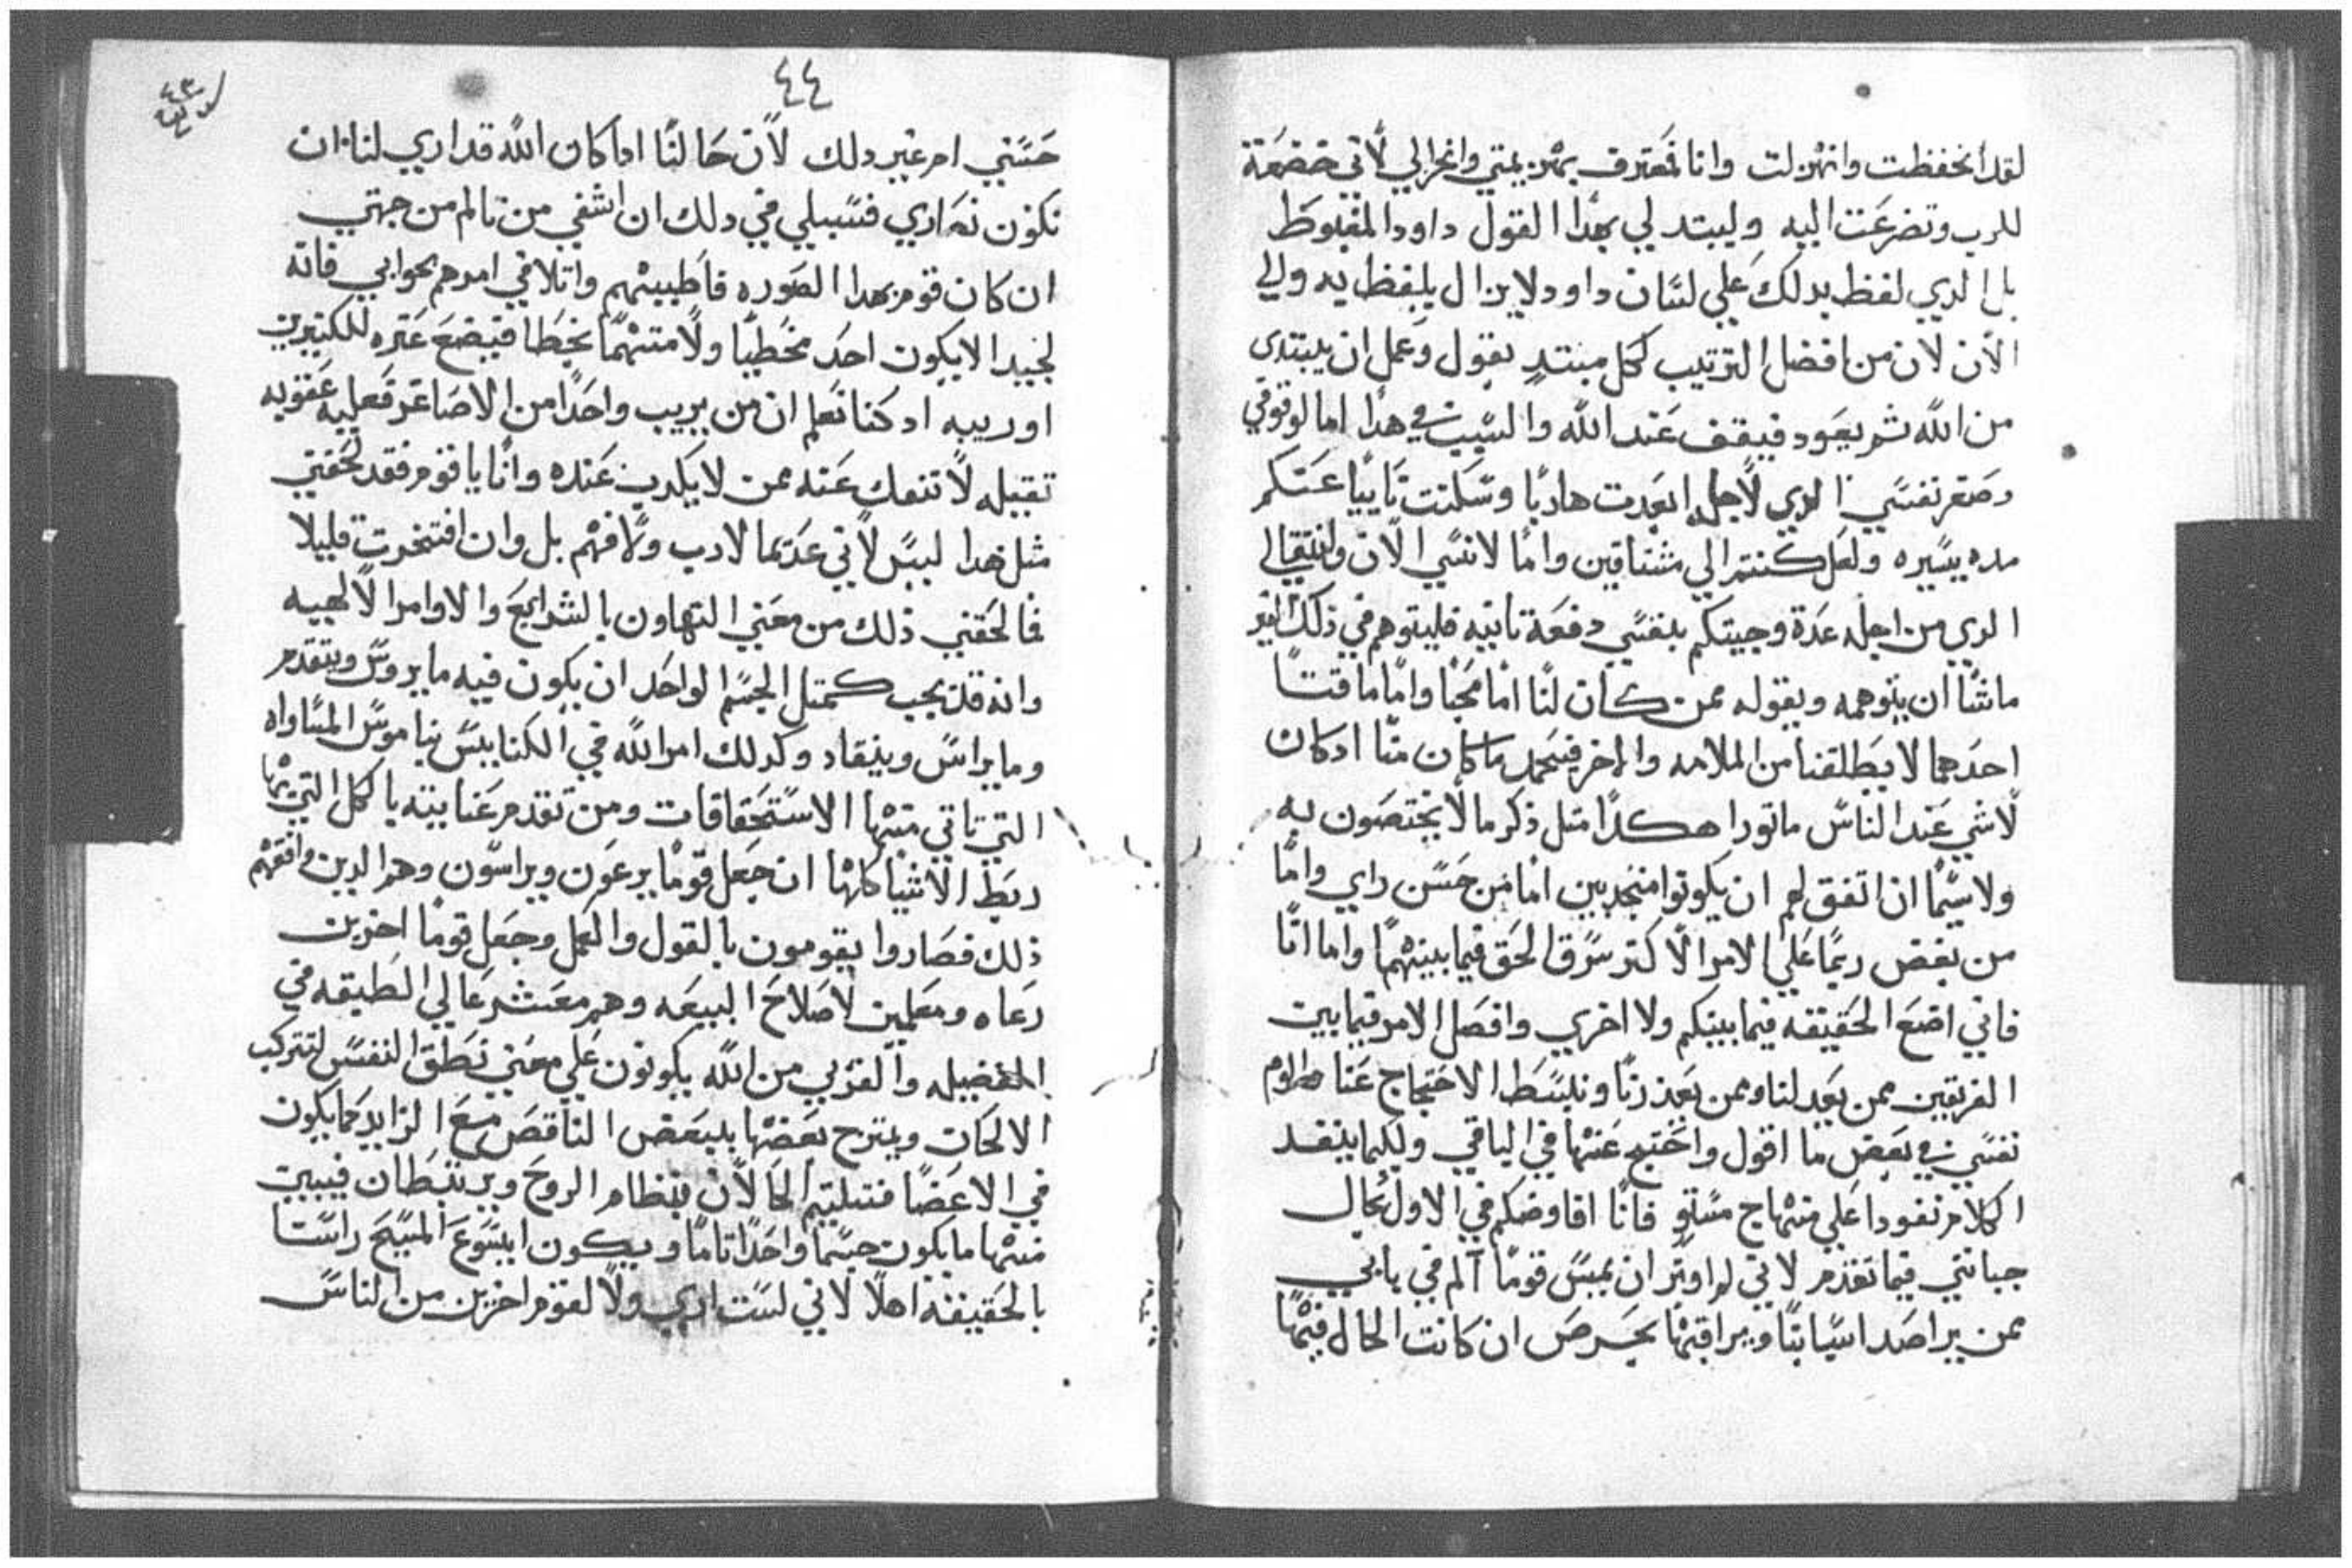 لقد انخفظت وانهزلت وانا فمعترف بهزيمتي وانخزالي لاني خضعة
للرب وتضرعت اليه وليبتد لي بهذا القول داوود المغبوط
بل الدي لفظ بدلك علي لسان داوود لا يزال يلفظ به والي
الان لان من افضل الترتيب لكل مبتد بقول وعمل ان يبتدي
من الله ثم يعود فيقف عند الله والسبب في هدا اما لوقوفي
وصغر نفسي الدي لاجله ابعدت هاربا وسكنت نابيا عنكم
مده يسيره ولعل كنتم الي مشتاقين واما لانسي الان وانتقالي
الدي من اجله عدة وجيتكم بنفسي دفعة تانيه فليتوهم في ذلك
ماشا ان يتوهمه ويقوله ممن كان لنا اما محبا واما ماقتا
احدهما لا يطلقنا من الملامه والاخر فيحمد ما كان منا ادكان
لاشي عند الناس ماتورا هكدا متل ذكر ما لا يختصون به
ولاسيما ان اتفق لهم ان يكونوا منجدبين اما من حسن راي واما
من بغض ربما علي الامر الاكتر سرق الحق فيما بينهما واما انا
فاني اضع الحقيقه فيما بينكم ولا اخزي وافصل الامر فيما بين
الفريقين ممن يعد لنا وممن يعذرنا ونبسط الاحتجاج عنا
نفسي في بعض ما اقول واحتج عنها في الباقي ولكيما ينفد
الكلام نفودا علي منهاج مستو فانا افاوضكم في الاول بحال
جبانتي فيما تقدم لاني لم اوتر ان يمس قوما الم في بابي
ممن يراصد اسبابنا ويراقبها بحرص ان كانت الحال فيها
٤٤
حسني ام غير دلك لان حالنا اداكان الله قد اري لنا ان
نكون نصاري فسبيلي في دلك ان اشفي من تالم من جهتي
ان كان قوم بهدا الصوره فاطيبهم واتلافي امرهم بجوابي فانه
لجيد الا يكون احد مخطيا ولا متهما بخطا فيضع عتره للكتيرين
او ريبه اد كنا نعلم ان من يريب واحدا من الاصاغر فعليه عقوبه
تقيله لا تنفك عنه ممن لا يكدب عنده وانا يا قوم فقد لحقني
متل هدا ليس لاني عديما لادب ولا فهم بل وان افتخرت قليلا
فالحقني ذلك من معني التهاون بالشرايع والاوامر الالهيه
وانه قد يجب كمتل الجسم الواحد ان يكون فيه ما يروس ويتقدم
وما يراس وينقاد وكدلك امر الله في الكنايس بناموس المساواه
التي تاتي منها الاستحقاقات ومن تقدم عنايته بالكل التي بها
ربط الاشيا كلها ان جعل قوما يرعون ويراسون وهم الدين وافقهم
ذلك فصاروا يقومون بالقول والعمل وجعل قوما اخرين
رعاه ومعلمين لاصلاح البيعه وهم معشر عالي الطبقه في
الفضيله والقربي من الله يكونون علي معني نطق النفس لتتركب
الالحان ويمتزج بعضها ببعض الناقص مع الزايد كما يكون
في الاعضا فتلتيم الحالان بنظام الروح ويرتبطان فيبين
منها ما يكون جسما واحدا تاما ويكون ايسوع المسيح راسنا
بالحقيقه اهلا لاني لست اري ولا لقوم اخرين من الناس